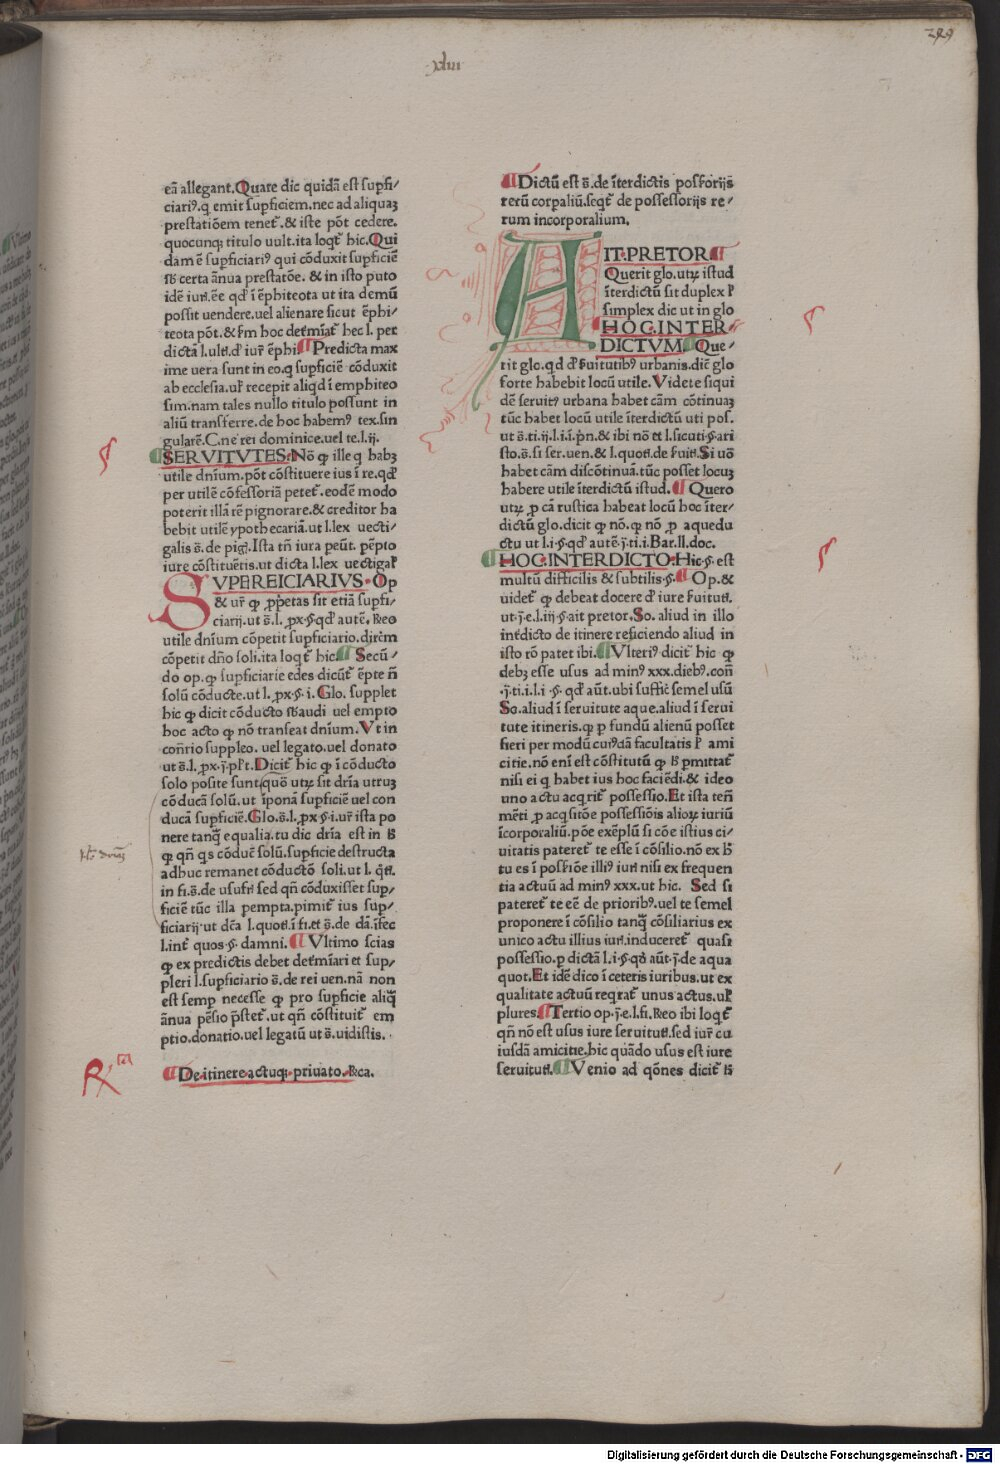 xliii
299
eā allegant.Quare dic quidā est supfi/
ciariꝰ.q emit supficiem.nec ad aliquaꝫ
prestatiōem tenet̄.& iste pōt cedere.
quocunqꝫ titulo uult.ita loqt̄ hic.Qui
dam ē supficiariꝰ qui cōduxit supficiē
sb̄ certa ānua prestatōe.& in isto puto
idē iuri.ēe qd̓ ī ēphiteota ut ita demū
possit uendere.uel alienare sicut ēphi/
teota pōt.& fm hoc det̄miat̄ hec l. per
dictā l.ulti.d̓ iur̄ ēphi.¶Predicta max
ime uera sunt in eo.q supficiē cōduxit
ab ecclesia.ul̓ recepit aliqd ī emphiteo
sim.nam tales nullo titulo possunt in
aliū transferre.de hoc habemꝰ tex.sin
gularē.C.ne rei dominice.uel te.l.ij.
¶SERVITVTES.Nō ꝙ ille q habꝫ
utile dnīum.pōt cōstituere ius ī re.qd̓
per utilē cōfessoriā petet̄.eodē modo
poterit illā rē pignorare.& creditor ha
bebit utilē ypothecariā.ut l.lex uecti/
galis s̄.de pig. Ista tn̄ iura peūt. pēpto
iure cōstituētis.ut dicta l.lex uectigal̓
SVPEREICIARIVS. Op
& ur̄ ꝙ ꝓpetas sit etiā supfi/
ciarij.ut s̄.l. ꝓx.§ qd̓ autē. Reo
utile dnīum cōpetit supficiario.directm
cōpetit dn̄o soli.ita loqt̄ hic.¶Secū/
do op.ꝙ supficiarie edes dicūt̄ ēpte n̄
solū cōducte.ut l. ꝓx.§.i. Glo. supplet
hic ꝙ dicit cōducto sb̄audi uel empto
hoc acto ꝙ nō transeat dnīum.Vt in
con̄rio suppleo. uel legato.uel donato
ut s̄.l. ꝓx.j.pl̓t.Dicit̄ hic ꝙ ī cōducto
solo posite sunt quō utꝫ sit dr̄ia utruꝫ
cōducā solū.ut īponā supficiē uel con
ducā supficiē.Glo.s̄.l. ꝓx.§.i.ur̄ ista po
nere tanq̄ equalia.tu dic dr̄ia est in h̄
ꝙ qn̄ qs cōducē solū.supficie destructa
adhuc remanet cōductō soli.ut l. qd̄.
in fi.s̄.de usufr̄ sed qn̄ cōduxisset sup/
ficiē tūc illa pempta.pimit̄ ius sup/
ficiarij.ut dc̄a l.quoti.ī fi.et s̄.de dā.īfec
l.int̄ quos §. damni. ¶ Vltimo scias
ꝙ ex predictis debet det̄mīari et sup/
pleri l.supficiario s̄.de rei uen.nā non
est semp necesse ꝙ pro supficie aliq̄
ānua pēsio p̄stet̄.ut qn̄ cōstituit̄ em
ptio.donatio.uel legatū ut s̄.uidistis.
¶De.itinere.actuqꝫ.priuato.Rca.
¶Dictū est s̄.de īterdictis possorijs
rerū corpaliū.seqt̄ de possessorijs re/
rum incorporalium.
AIT.PRETOR ¶
Querit glo.utꝫ istud
īterdictū sit duplex ł
simplex dic ut in glo
¶HOC.INTER-
DICTVM ¶Que/
rit glo.qd d̓ fuitutibꝰ urbanis.dic̄ glo
forte habebit locū utile.Videte siqui
dē seruitꝰ urbana habet cām cōtinuaꝫ
tūc habet locū utile īterdictū uti pos.
ut s̄.ti.ij.l.i.ī.pn̄.& ibi nō et l.sicuti §.ari
sto.s̄.si ser.uen.& l.quoti.de fuiti.Si uō
habet cām discōtinuā.tūc posset locuꝫ
habere utile īterdictū istud.¶ Quero
utꝫ ꝓ cā rustica habeat locū hoc īter/
dictū glo.dicit ꝙ nō. ꝙ nō ꝓ aquedu
ctu ut l.i.§ qd̓ autē j.ti.i.Bar.ll.doc.
¶HOC.INTERDICTO.Hic.§ est
multū difficilis & subtilis.§. ¶ Op.&
uidet̄ ꝙ debeat docere d̓ iure fuituti.
ut.j.e.l.iij.§ ait pretor.So. aliud in illo
int̄dicto de itinere reficiendo aliud in
isto rō patet ibi.¶Vlteriꝰ dicit̄ hic ꝙ
debꝫ esse usus ad minꝰ xxx.diebꝰ.con̄
.j.ti.i.l.i .§. qd̓ aūt.ubi suffic̄ semel usū
So.aliud ī seruitute aque.aliud ī serui
tute itineris.ꝙ p fundū alienū posset
fieri per modū cuiꝰdā facultatis ł ami
citie.nō eni est cōstitutū ꝙ h̄ pmittat̄
nisi ei q habet ius hoc faciēdi.& ideo
uno actu acqrit̄ possessio.Et ista ten̄
mēti ꝓ acqsitōe possessiōis alioꝝ iuriū
īcorporaliū.pōe exēplū si cōe istius ci/
uitatis pateret̄ te esse ī cōsilio.nō ex h̄
tu es ī possiōe illiꝰ iuri nisi ex frequen
tia actuū ad minꝰ xxx.ut hic. Sed si
pateret̄ te eē de prioribꝰ.uel te semel
proponere ī cōsilio tanq̄ cōsiliarius ex
unico actu illius iuri.induceret̄ quasi
possessio.p dictā l.i.§ qd̓ aūt.j.de aqua
quot.Et idē dico ī ceteris iuribus.ut ex
qualitate actuū reqrat̄ unus actus.ul̓
plures.¶Tertio op.j.e.l.fi.Reo ibi loqt̄
qn̄ nō est usus iure seruituti.sed iur̄ cu
iusdā amicitie.hic quādo usus est iure
seruituti.¶Venio ad qōnes dicit̄ h̄
Digitalisierung gefördert durch die Deutsche Forschungsgemeinschaft - DFG